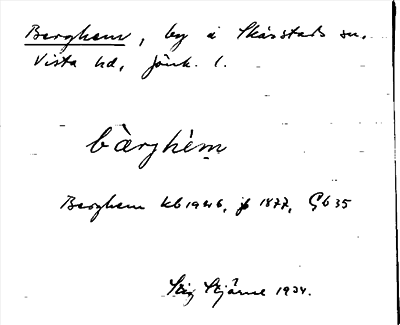 Berghem, by i Skärstads sn.
Vista hd, Jönk. l.
bàrghèm
Berghem kb 1946, jb 1877, Gb 35
Stig Stjärne 1934.